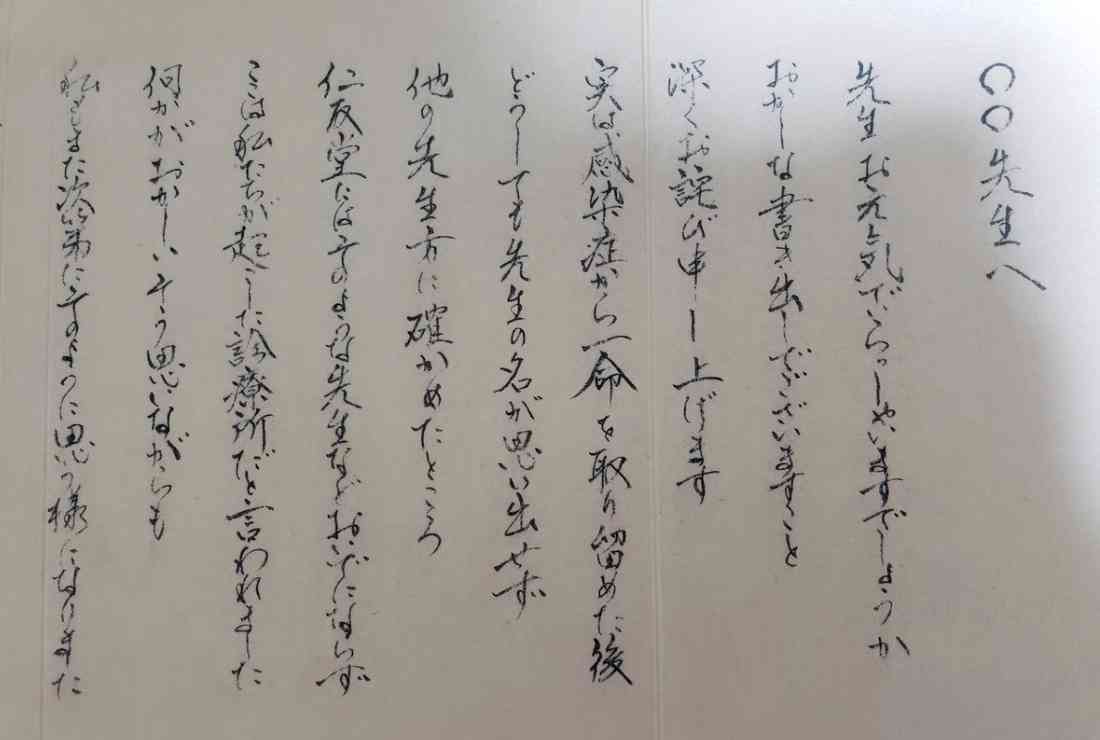 〇〇先生へ
先生お元気でいらっしゃいますでしょうか
おかしな書き出しでございますこと
深くお詫び申し上げます
実は感染症から一命を取り留めた後
どうしても先生の名が思い出せず
他の先生方に確かめたところ
仁友堂にはそのような先生などおいでにならず
ここは私たちが起こした診療所だと言われました
何かがおかしいそう思いながらも
私もまた次第にそのように思う様になりました